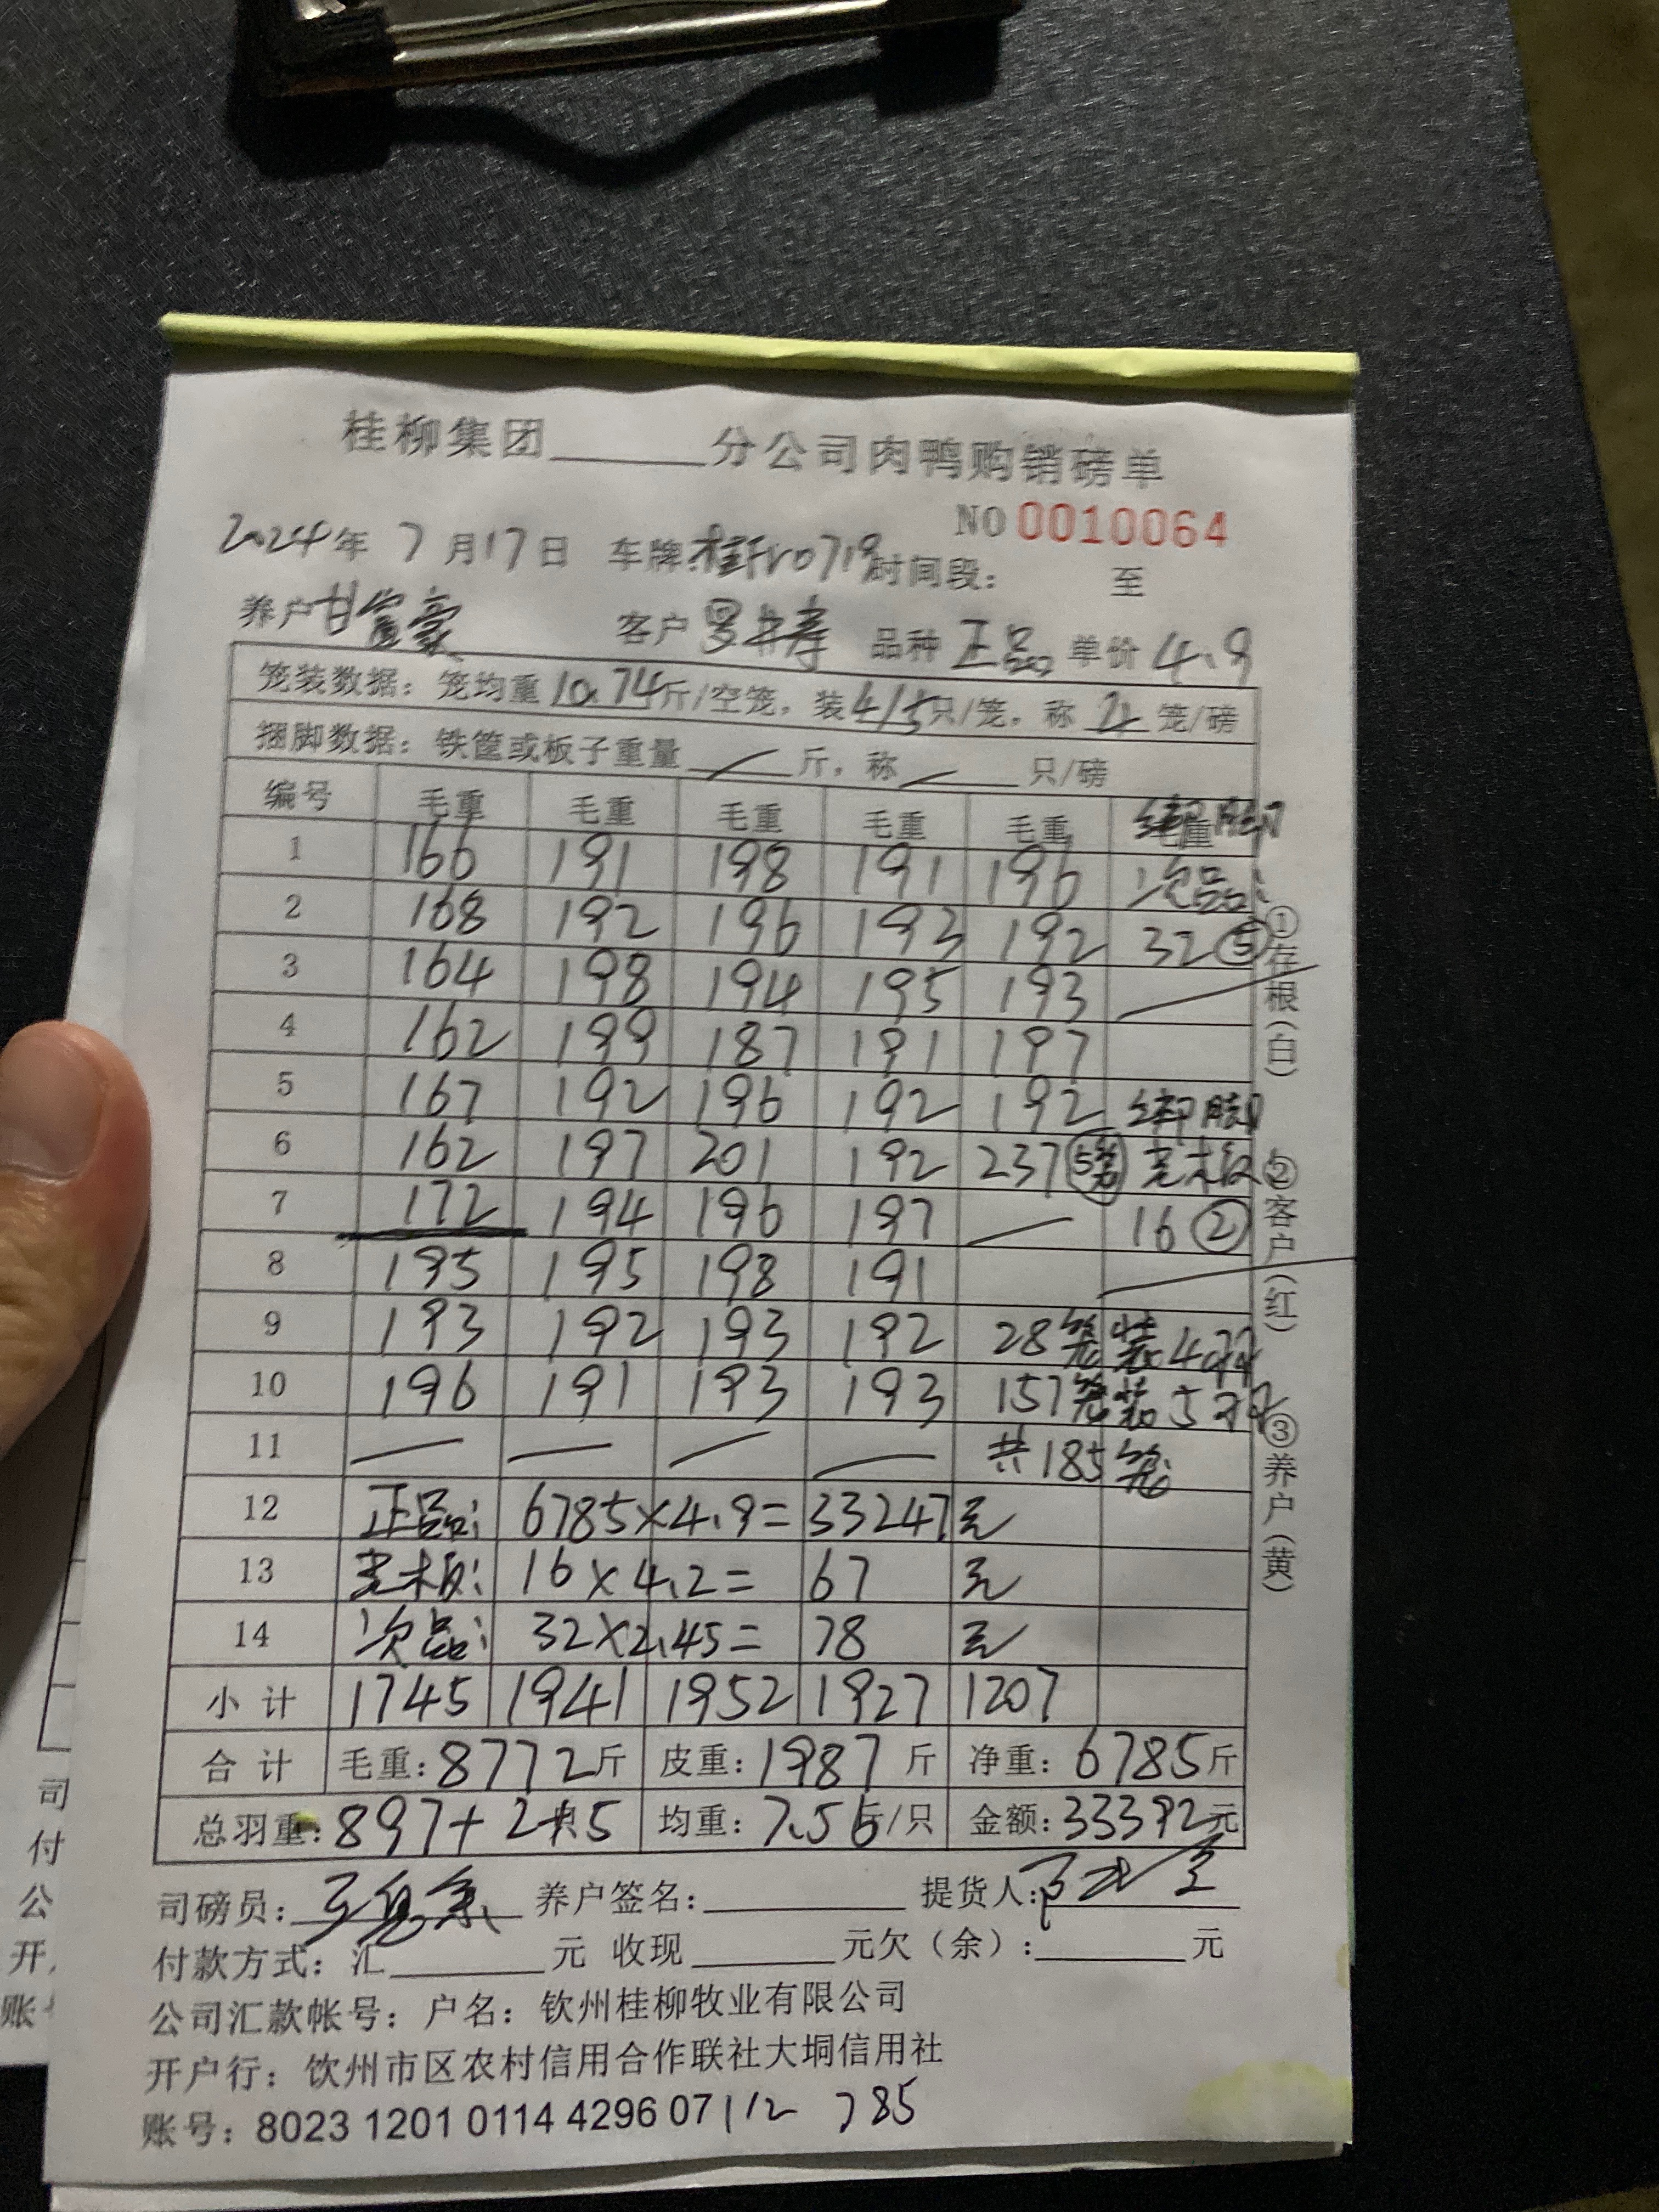 桂柳集团______分公司肉鸭购销磅单
NO 0010064
2024年 7月17日 车牌:桂 0719 时间段: 至
养户 甘富豪 客户 品种 正品 单价 4.9
笼装数据: 笼均重 10.74 斤/空笼, 装 4/5 只/笼, 称 4 笼/磅
捆脚数据: 铁筐或板子重量 / 斤, 称 / 只/磅
编号 毛重 毛重 毛重 毛重 毛重 毛重 绑脚
1 166 191 198 191 196 次品:
2 168 192 196 193 192 32 ⑤
3 164 198 194 195 193
4 162 199 187 191 197
5 167 192 196 192 192 绑脚
6 162 197 201 192 237 5笼
7 172 194 196 197 — 16 ②
8 195 195 198 191
9 193 192 193 192 28笼装4只
10 196 191 193 193 157笼装5只
11 — — — — 共185笼
12 正品: 6785×4.9= 33247元
13 16×4.2= 67 元
14 次品: 32×2.45= 78 元
小计 1745 1941 1952 1927 1207
合计 毛重: 8772斤 皮重: 1987斤 净重: 6785斤
总羽重: 897+2+5 均重: 7.56斤/只 金额: 33392元
司磅员: 养户签名: 提货人:
付款方式: 汇______元 收现______元欠(余):______元
公司汇款帐号: 户名: 钦州桂柳牧业有限公司
开户行: 钦州市区农村信用合作联社大垌信用社
账号: 8023 1201 0114 4296 07 112 785
①存根(白) ②客户(红) ③养户(黄)
司
付
公
开
账